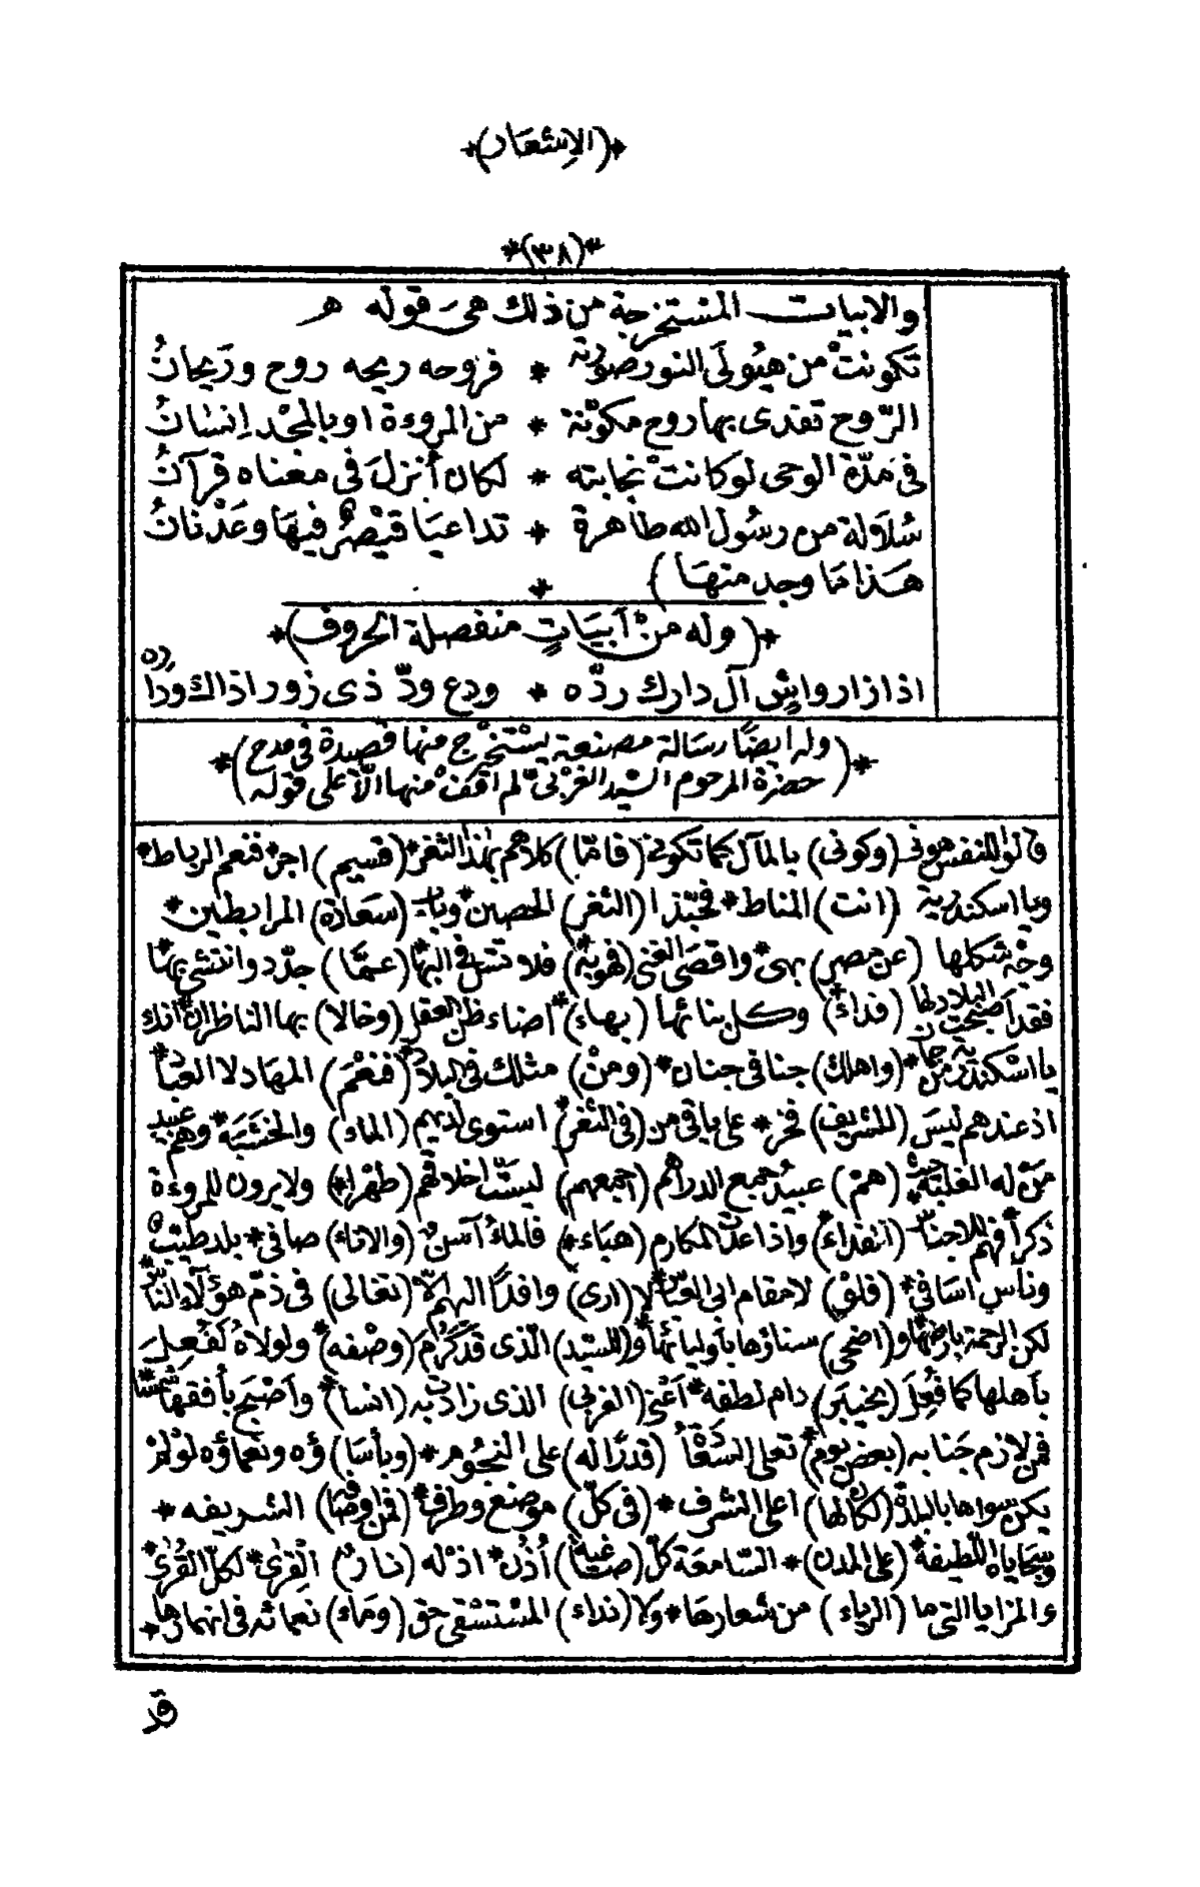 *(الإشعار)*
*(٣٨)*
والابيات المستخرجة من ذلك هى قوله
تكونتْ من هيُولَى النور صورته * فروحه ريحه روح ورَيحانُ
الرّوح تفدى بها روح مكوّنة * من المروءة او بالمجْد اِنسانُ
فى مدّة الوحى لو كانتْ نجابته * لكان أنزلَ فى مغناه قرآنُ
سُلاَلة من رسُول الله طاهرة * تداعيَا قيْصرٌ فيهَا وعَدْنانُ
هَذا مَا وجد منهَا )
*
*( وله منْ آبيَاتٍ منفصلة الحروف)*
اذا زار وايش آل دارك ردّه * ودع ودّ ذى زور اذا لك ودّا رده
*( وله ايضًا رسَالة مصنعة يسْتخْرج منها قصيدة فى مدح
حضرة المرحوم السّيد الغرْبىّ لم اقفْ منها الّا على قوله )*
قالوا للنفس هونى (وكونى) بالمآل كما تكونى (فامّا) كلاهم بهٰذا الثغر* (قسيم) اجرٌ* فنعم الرباط*
ويا اسكندرية (انت) المناط* فحبّذا (الثغر) الحصين* وباب (سعَادة) المرابطين*
وجْه شكلها (عن مصر) بهىٌ* واقصَى الغنى (فهوية) فلا تنس فى البها (عمّا) جدّد وانتشى بها*
فقد اَصبحَتْ البلاد لها (فداءٌ) وكل بنائها (بهاءٌ)* اضاء ظن العقل (وخالا) بها الناظر ان* انك
يا اسْكندرية من (واهلك) جنا فى جنان* (ومنْ) مثلك فى البلاد* (فنعْمَ) المهاد لا العبا*
اذ عندهم ليسَ (للشريف) فخر* على باقى من (فى الثغر)* استوى لديهم (الماء) والخشبَة* وهم عبيد
منْ له الغلبَة* (همْ) عبيدُ جميع الدراهم (اجمعهم) ليسَتْ اخلاقهم (طهْرا)* ولا يرون للمروءة
ذكرًا* فهم للاجنا (انفداءٌ)* واذا عدّت المكارم (هبَاء)* فالماءُ آسنٌ* (والاناء) صافى* بلد طيّبٌ*
وناس اسَافى* (فلقْ) لا مقام ابى العبّاس* لا (ارى) وافدًا اليهم الّا (تعالى) فى ذمّ هؤلآء النّاس*
لكن الرحمة بارضها* و(اضحى) سناؤها باَوليائها* و(للسّيد) الّذى قدْ كَرُمَ (وصْفه)* ولولاهُ لفُعِلَ
باَهلها كما فُعِلَ (بخيبَر) دام لطفه* اَعْنى (الغربى) الذى زادت به (انسا)* واَصْبحَ باُفقها شمسًا*
فمن لازم جَنابه (بعض يوم)* تعلى السّعدُ (قدرًا له) على النجُوم* (وبأسَا)ؤه ونعماؤه لوْ لمْ
يكن سواها بالبلدة (لكان لها) اعلى الشرف* (فى كلّ) موضع وطرف* (فمن اوصَافه) الشريفه*
وسَجاياه اللّطيفة* (على المدن)* السّامعَة كلّ (صغية) اُذُن* اذ له (نارُ) القِرٰى* لكلّ القُرٰى*
والمزايا التى ما (الرياء) من شعارهَا* ولا (نداء) المسْتسْقى حق (وماء) نعمائه فى انهمارهَا*
قد